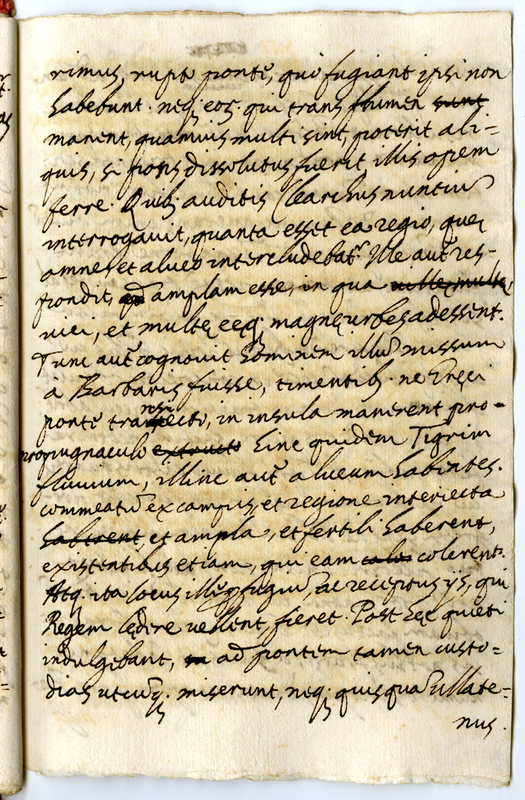 rimus, rupto ponte, quo fugiant ipsi non
habebunt. neq; eos qui trans flumen sunt
manent, quamuis multi sint, poterit ali=
quis, si pons dissolutus fuerit illis opem
ferre. Quib; auditis Clearchus nuntiũ
interrogauit, quanta esset ea regio, quę
amne, et alueo intercludebat.r Ille aut̃ res-
pondit, amplam esse, in qua
vici, et multę eęq; magnę urbes adessent.
Tunc aut̃ cognouit hominem illũ missum
à Barbaris fuisse, timentib; ne Gręci
ponte in insula manerent pro-
propugnaculo hinc quidem Tigrim
fluuium, illinc aut̃ alueum habentes.
commeatũ ex campis, et regione interiecta
et ampla, et fertili haberent,
existentibus etiam, qui eam colerent.
Atq; ita locus ille fieret. Post hęc quieti
Regem lędere vellent,
indulgebant, ad pontem tamen custo=
dias miserunt, neq; quisquã ullate=
nus.